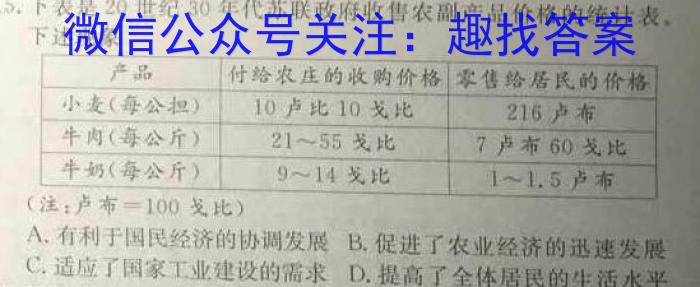 5. 下表是 20 世纪 30 年代苏联政府收售农副产品价格的统计表。
下述
微信公众号关注：趣找答案
产品 付给农庄的收购价格 零售给居民的价格
小麦(每公担) 10 卢比 10 戈比 216 卢布
牛肉(每公斤) 21～55 戈比 7 卢布 60 戈比
牛奶(每公斤) 9～14 戈比 1～1.5 卢布
(注:卢布＝100 戈比)
A. 有利于国民经济的协调发展 B. 促进了农业经济的迅速发展
C. 适应了国家工业建设的需求 D. 提高了全体居民的生活水平